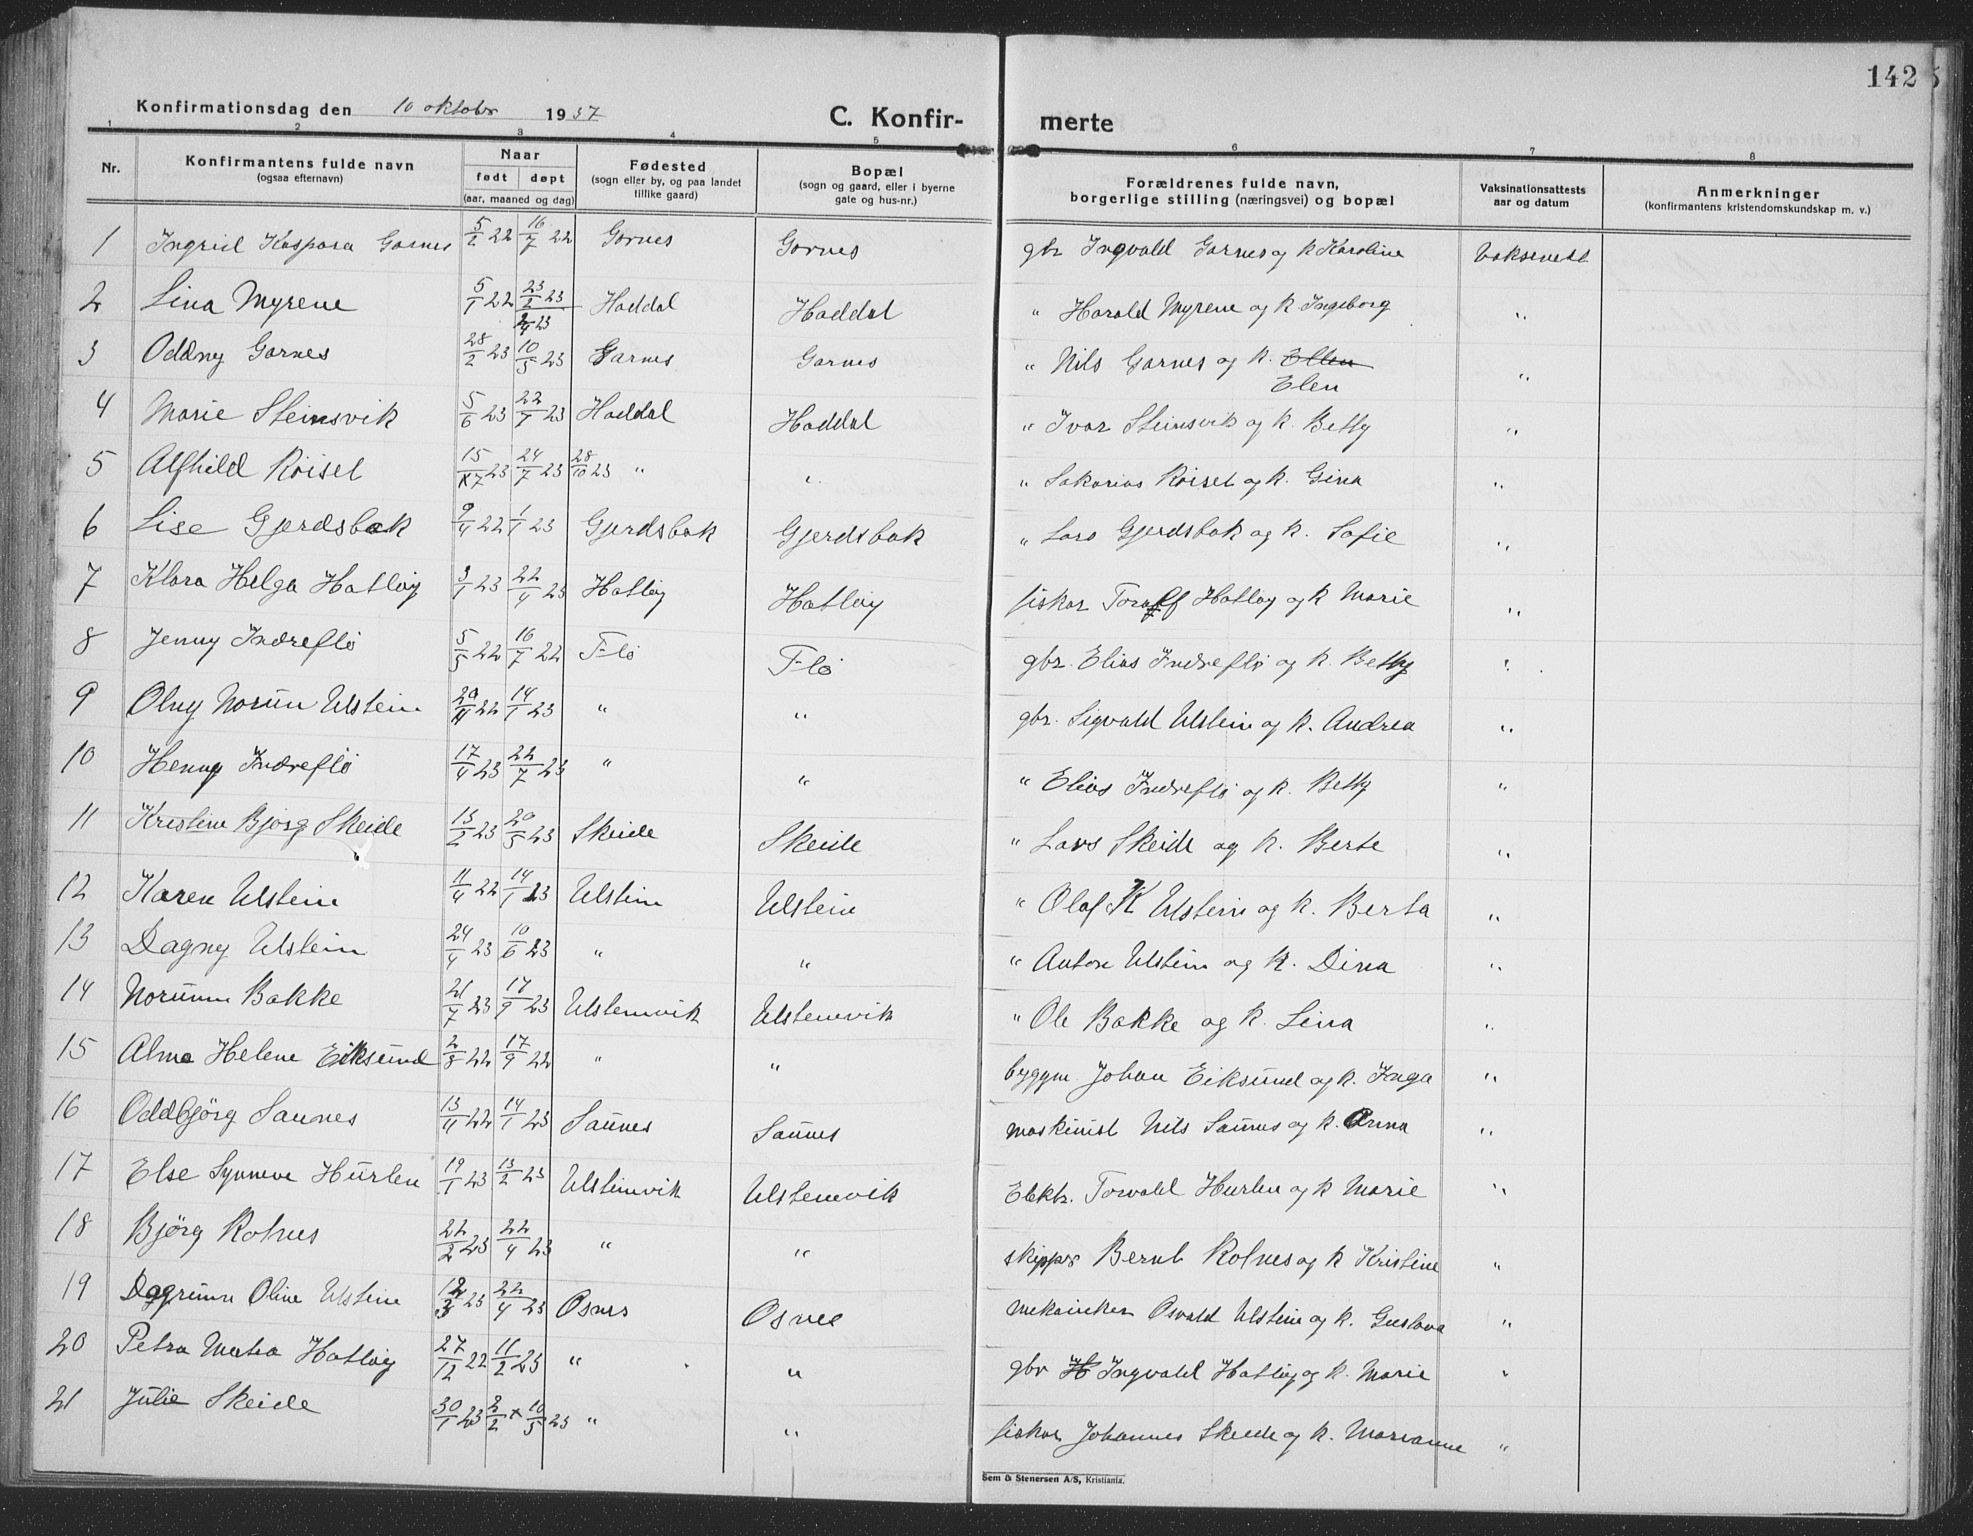 142
Konfirmationsdag den 10 oktober 1937
C. Konfir- merte
1 2 3 4 5 6 7 8
Nr. | Konfirmantens fulde navn (ogsaa efternavn) | Naar født døpt (aar, maaned og dag) | Fødested (sogn eller by, og paa landet tillike gaard) | Bopæl (sogn og gaard, eller i byerne gate og hus-nr.) | Forældrenes fulde navn, borgerlige stilling (næringsvei) og bopæl | Vaksinationsattests aar og datum | Anmerkninger (konfirmantens kristendomskundskap m. v.)
1 Ingrid Kaspara Garnes 5/2 22 16/7 22 Garnes Garnes gbr Ingvald Garnes og k Karoline Vaksinert
2 Lina Myrene 5/1 22 23/2 23 2/4 23 Haddal Haddal " Harald Myrene og k Ingeborg "
3 Oddny Garnes 28/2 23 10/5 23 Garnes Garnes " Nils Garnes og k. Ellen Elen "
4 Marie Steinsvik 5/6 23 22/7 23 Haddal Haddal " Ivar Steinsvik og k. Betty "
5 Alfhild Röisel 15/7 23 24/7 23 28/10 23 " " " Sakarias Röisel og k. Gina "
6 Lise Gjerdsbak 9/4 22 1/1 23 Gjerdsbak Gjerdsbak " Lars Gjerdsbak og k. Sofie "
7 Klara Helga Hatlöy 3/1 23 22/4 23 Hatlöy Hatlöy fiskar Toralf Hatlöy og k Marie "
8 Jenny Indreflö 5/5 22 16/7 22 Flö Flö gbr. Elias Indreflö og k. Betty "
9 Olny Norun Ulstein 22 14/1 23 " " gbr. Sigvald Ulstein og k. Andrea "
10 Henny Indreflö 17/4 23 22/7 23 " " " Elias Indreflö og k. Betty "
11 Kristine Bjørg Skeide 13/2 23 20/5 23 Skeide Skeide " Lars Skeide og k. Berte "
12 Karen Ulstein 11/4 22 14/1 23 Ulstein Ulstein " Olaf K Ulstein og k. Berta "
13 Dagny Ulstein 24/4 23 10/6 23 " " " Anton Ulstein og k. Dina "
14 Norunn Bakke 21/7 23 17/9 23 Ulsteinvik Ulsteinvik " Ole Bakke og k. Lina "
15 Alma Helene Eiksund 2/8 22 17/9 22 " " byggm. Johan Eiksund og k. Inga "
16 Oddbjørg Saunes 13/11 22 14/1 23 Saunes Saunes maskinist Nils Saunes og k. Anna "
17 Else Synneve Hurlen 19/1 23 13/2 23 Ulsteinvik Ulsteinvik Elektr. Torvald Hurlen og k Marie "
18 Bjørg Rotnes 22/2 23 22/4 23 " " skipper Bernt Rotnes og k Kristine "
19 Dagrunn Oline Ulstein 12/3 23 22/4 23 Osnes Osnes mekaniker Osvald Ulstein og k. Gustava "
20 Petra Hatlöy 27/12 22 11/2 23 " " gbr Ingvald Hatlöy og k. Marie "
21 Julie Skeide 30/1 23 2/2 + 10/5 23 " " fiskar Johannes Skeide og k. Marianne "
Sem & Stenersen A/S, Kristiania.